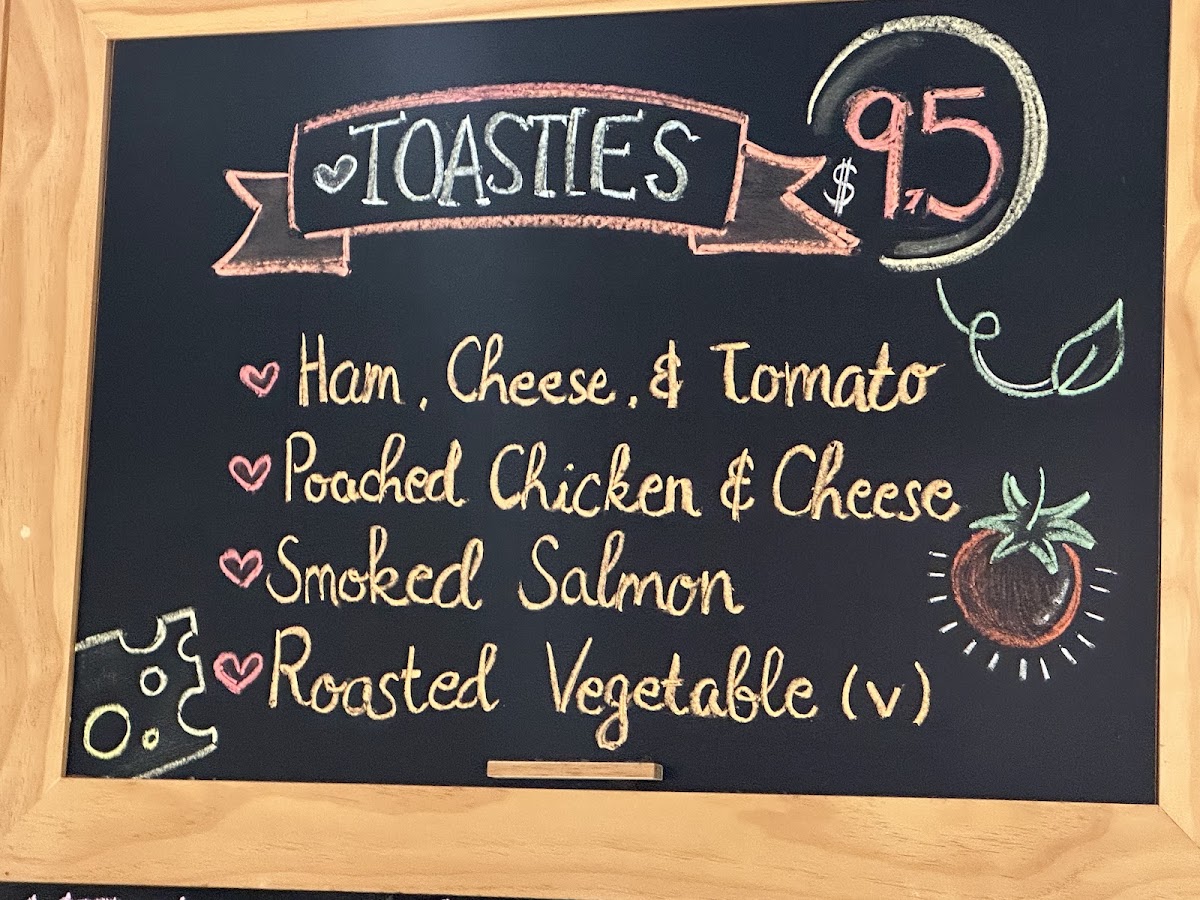 TOASTIES
$9,5
Ham, Cheese, & Tomato
Poached Chicken & Cheese
Smoked Salmon
Roasted Vegetable (v)